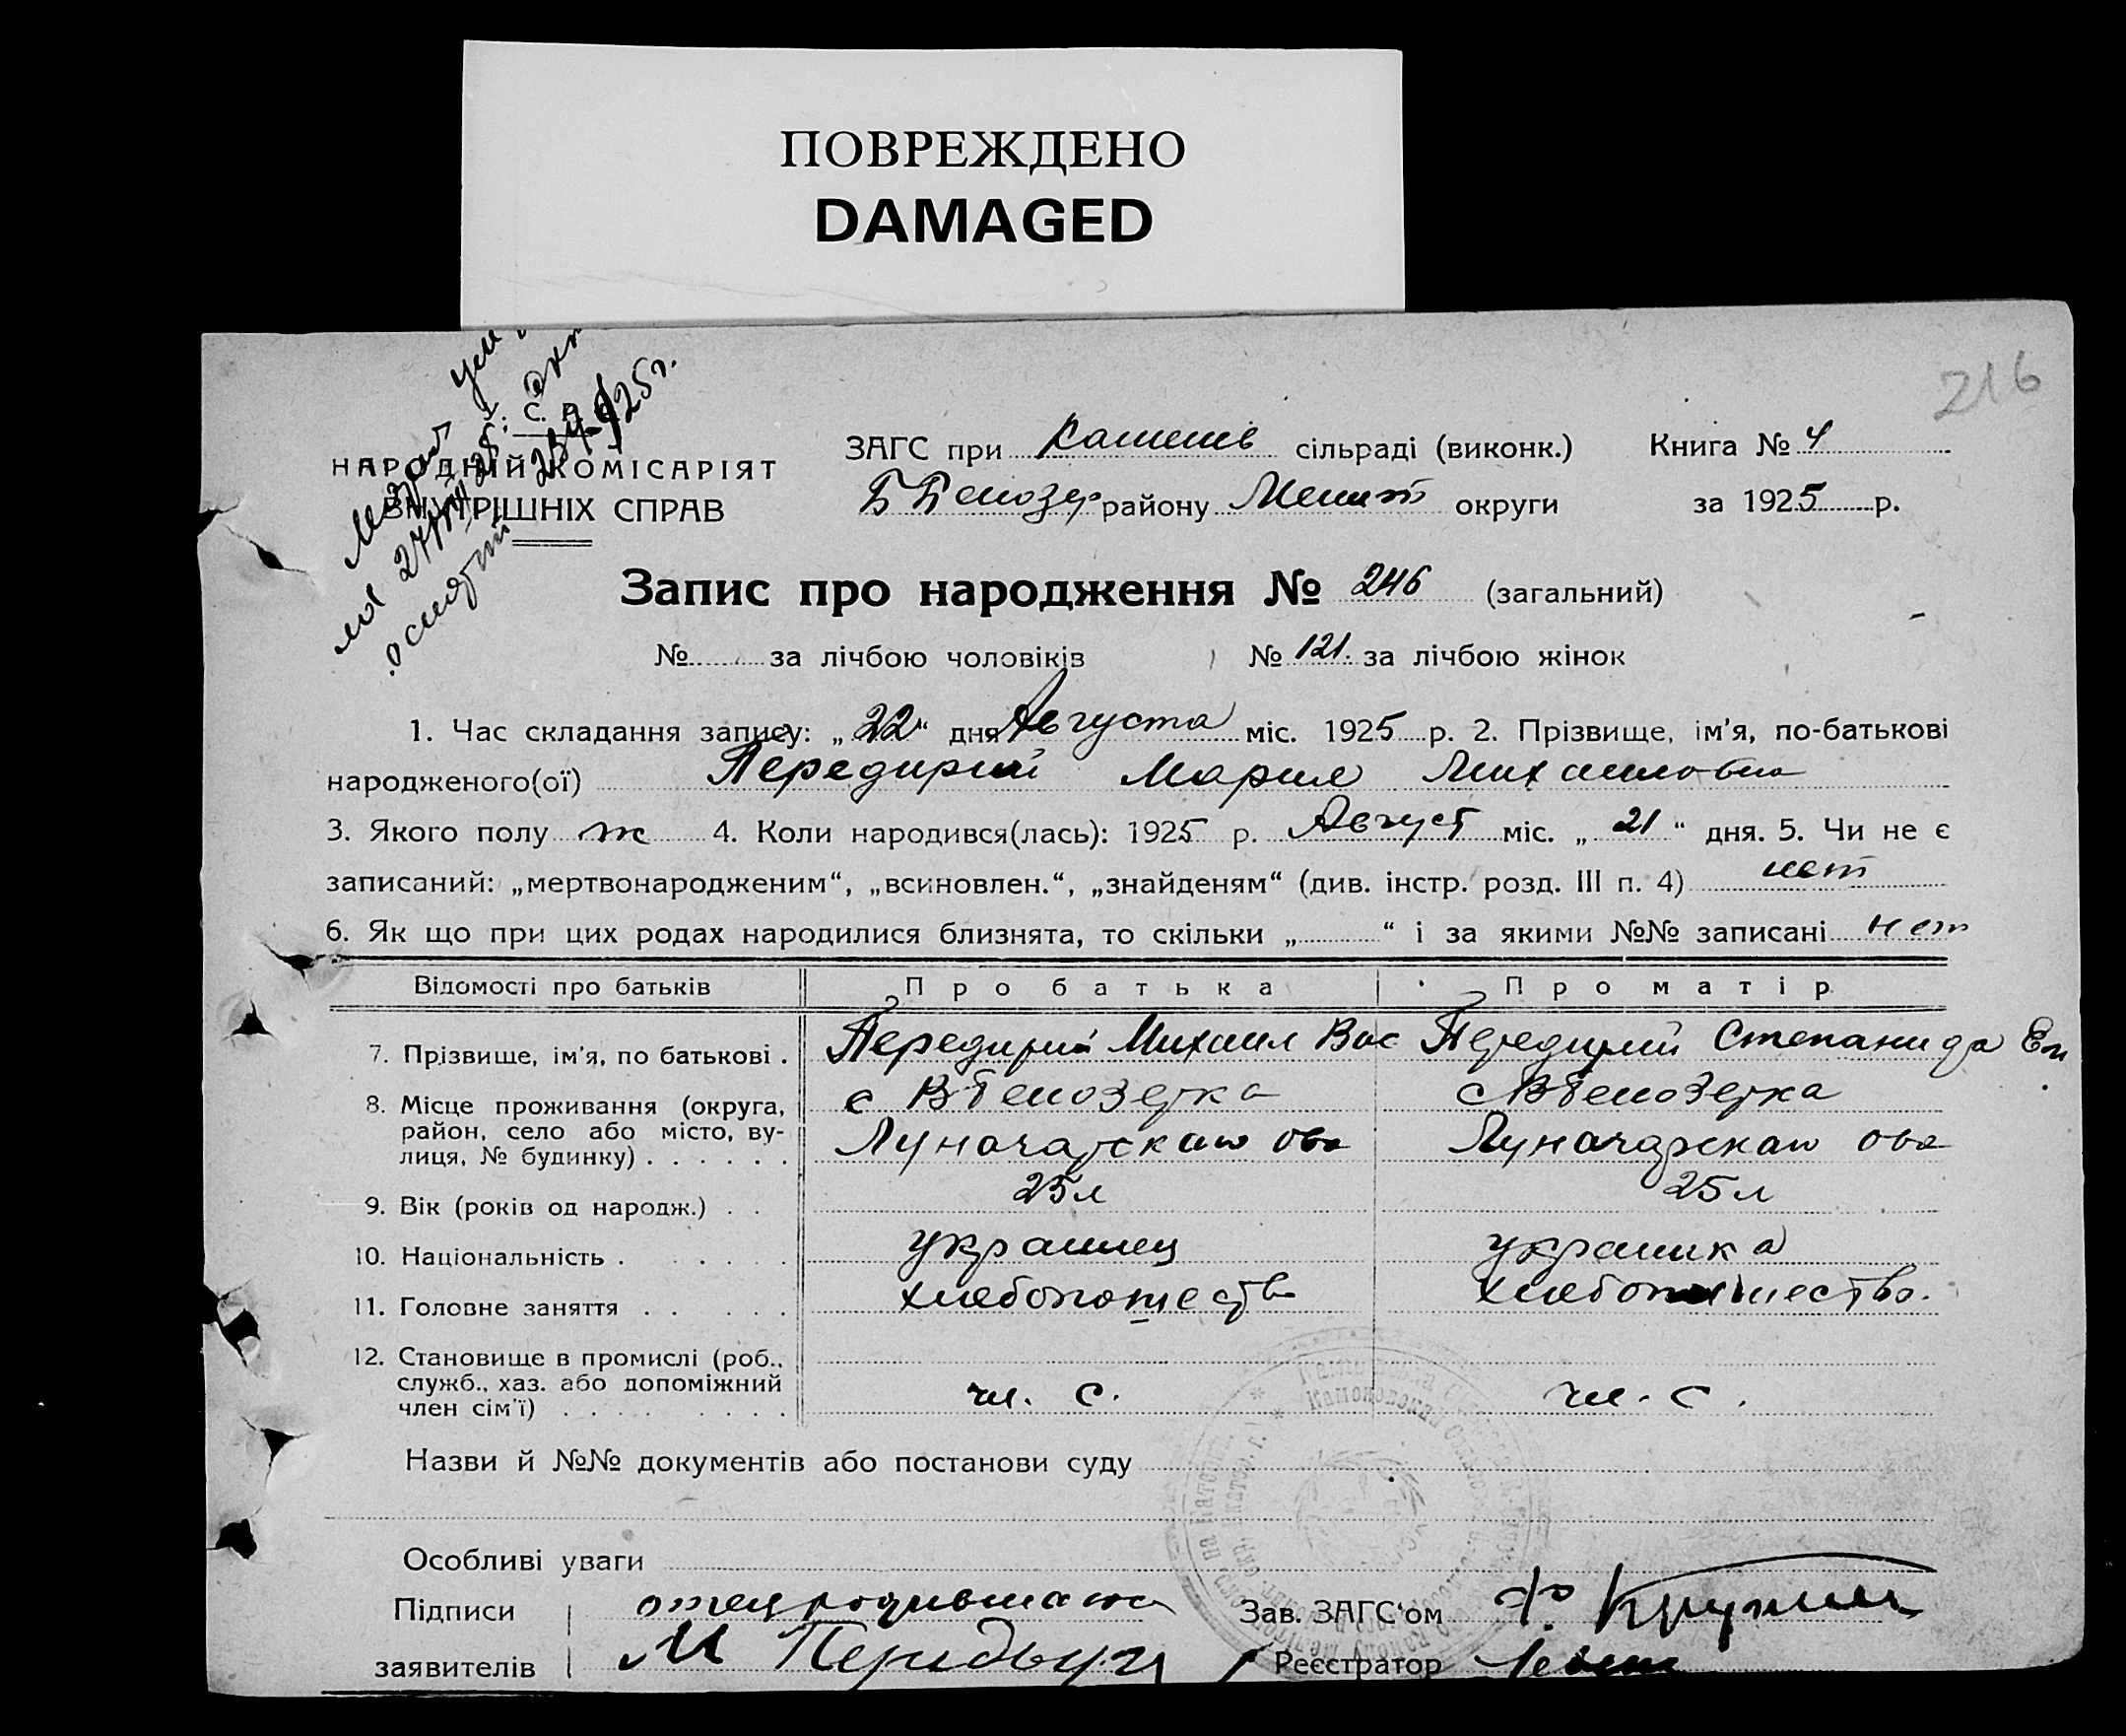 ПОВРЕЖДЕНО
DAMAGED
216
НАРОДНІЙ КОМІСАРІЯТ
ВНУТРІШНІХ СПРАВ
ЗАГС при Каменів сільраді (виконк.) Книга № 4
Б Белозер району Мелит округи за 1925 р.
Запис про народження № 246 (загальний)
№ за лічбою чоловіків № 121. за лічбою жінок
1. Час складання запису: „22“ дня Августа міс. 1925 р. 2. Прізвище, ім’я, по-батькові
народженого(ої) Передирий Мария Михаиловна
3. Якого полу ж 4. Коли народився(лась): 1925 р. Август міс. „21“ дня. 5. Чи не є
записаний: „мертвонародженим“, „всиновлен.“, „знайденям“ (див. інстр. розд. III п. 4) нет
6. Як що при цих родах народилися близнята, то скільки „ “ і за якими №№ записані нет
Відомості про батьків Про батька Про матір
7. Прізвище, ім’я, по батькові . Передирий Михаил Вас Передирий Степанида Еп
8. Місце проживання (округа, район, село або місто, вулиця, № будинку) . . . . . . с ВБелозерка с ВБелозерка
Луначарскаю ова Луначарскаю ова
9. Вік (років од народж.) . . 25 л 25 л
10. Національність . . . . . украинец украинка
11. Головне заняття . . . . хлебопашество хлебопашество.
12. Становище в промислі (роб., служб., хаз. або допоміжний член сім’ї) . . . . . . . . чл. с. чл. с.
Назви й №№ документів або постанови суду
Особливі уваги
Підписи отец родившаюся Зав. ЗАГС‘ом Ф.
заявителів М Реєстратор